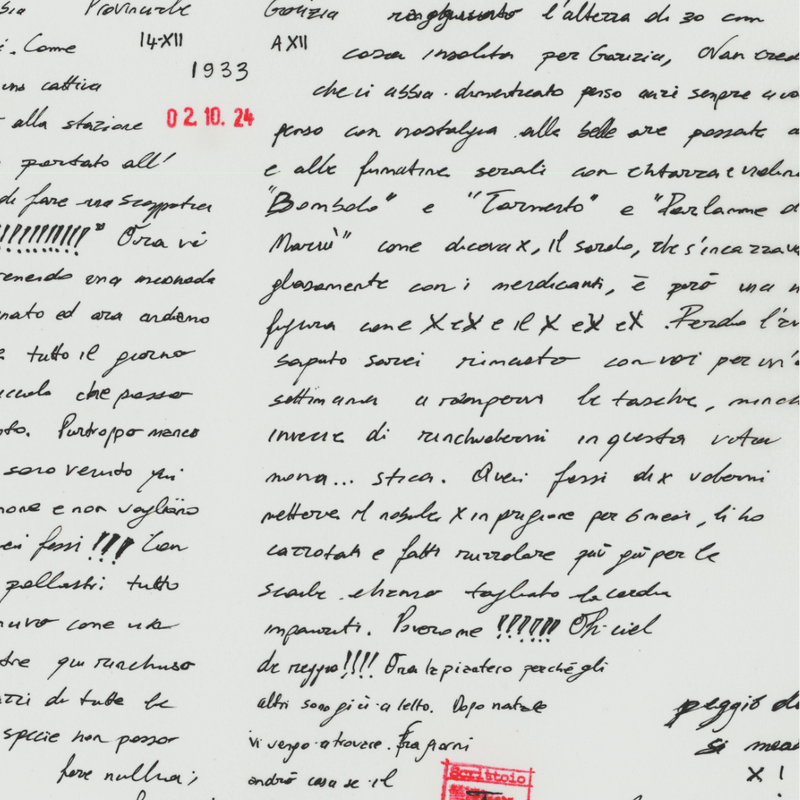 Provinciale
. Come
14-XII
1933
cattiva
alla stazione
02.10.24
portato all'
di fare una scappatina
!!!!!!!!!!" Ora vi
una
ed ora andiamo
tutto il giorno
che posso
Purtroppo manco
sono venuto qui
e non vogliono
fessi !!! Con
pollastri tutto
nuvo come una
qui rinchiuso
di tutte le
specie non posso
fare nulla;
Gorizia raggiunto l'altezza di 30 cm
A XII
cosa insolita per Gorizia, Non
che vi abbia dimenticato penso anzi sempre a
penso con nostalgia alle belle ore passate
e alle fumatine serali con chitarra e
"Bombolo" e "Tormento" e "Parlame
Mariù" come diceva X, il sordo, che s'incazzava
con i mendicanti, è però una
figura come X e X e il X e X e X. Perdo
saputo sarei rimasto con voi per un'
settimana a rompervi le tasche,
invece di rinchiudermi in questa
mona... stica. Quei fessi di X
mettere il nobile X in prigione per 6 mesi, li ho
e fatti ruzzolare giù giù per le
scale tagliato la corda
impauriti. Povero me !!!!!! Oh ciel
!!!! Ora la pianterò perché gli
altri sono già a letto. Dopo natale
vi vengo a trovare. Fra giorni
andrò casa se il
Scrittoio
peggio di
si
X !